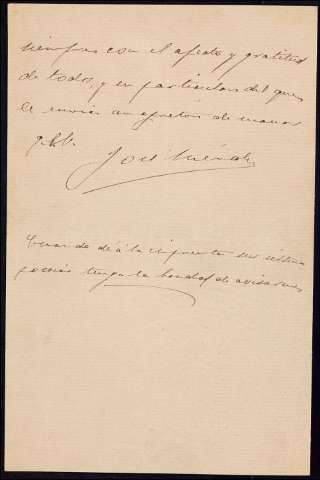 siempre con el afecto y gratitud
de todos, y en particular del que
le envia un apreton de manos
José Méndez
Cuando dé á la imprenta sus últimas
poesías tenga la bondad de avisarme